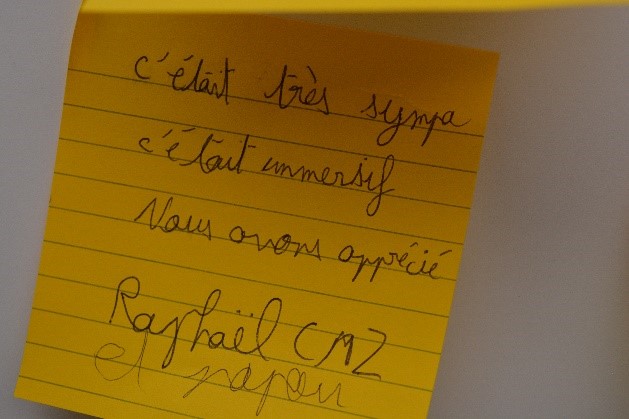 c'était très sympa
c'était immersif
Nous avons apprécié
Raphaël CM2
et papou